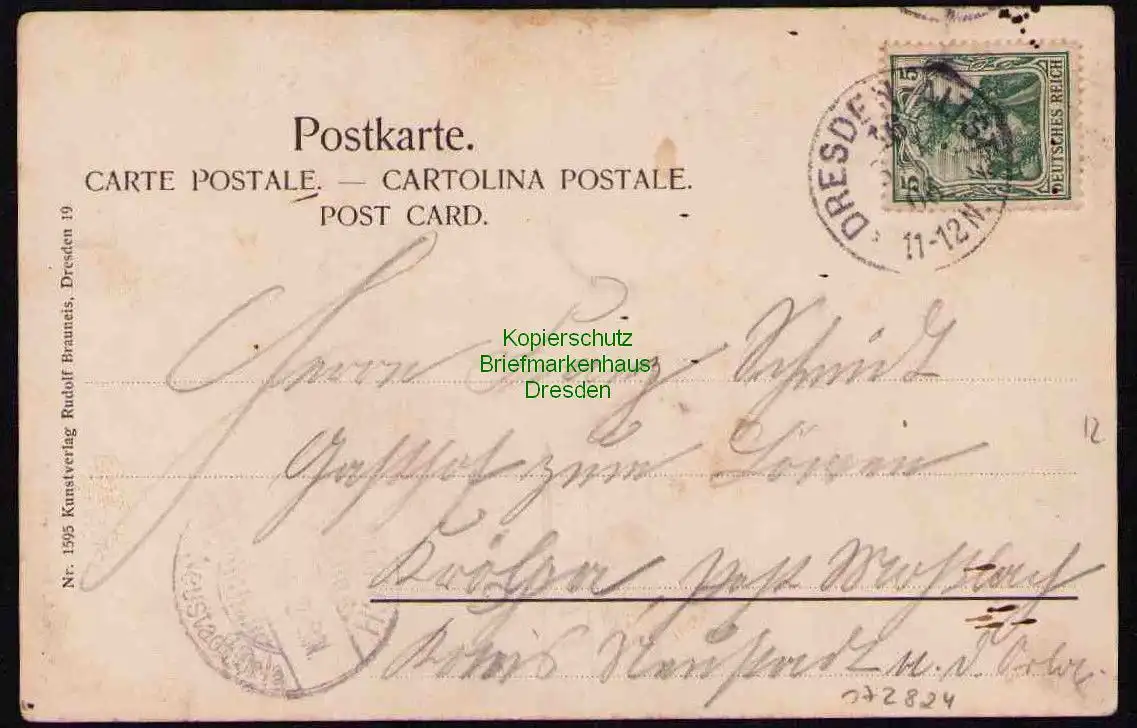 DRESDEN-ALTST.
11-12N.
5
5
DEUTSCHES REICH
Postkarte.
CARTE POSTALE. — CARTOLINA POSTALE.
POST CARD.
Nr. 1595 Kunstverlag Rudolf Brauneis, Dresden 19
Kopierschutz
Briefmarkenhaus
Dresden
Herrn Schmidt
Gasthof zum Löwen
12
Post
Neustadt
Kreis Neustadt a. d. Orla.
172824